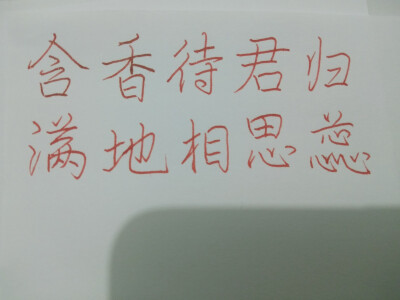 含香待君归
满地相思蕊